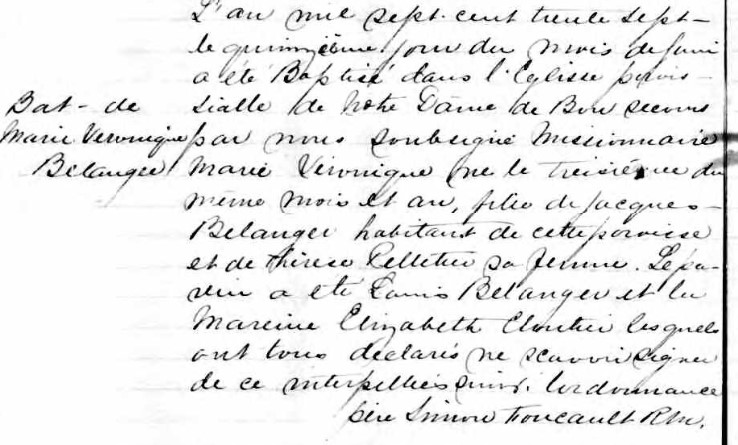 L'an mil sept. cent trente sept -
le quinzième jour du mois de juin
a été Baptisé dans l'Eglisse parois -
Bat - de
sialle de Notre Dâme de Bon secours
Marie Veronique
par nous soubsigné Missionnaire
Belanger
Marie Véronique née le treisième du
même mois et an, fille de Jacques -
Bélanger habitant de cette paroisse
et de thérèse Pelletier sa femme. Le pa -
rein a été Louis Bélanger et la
Mareine Elizabeth Cloutier lesquels
ont tous déclarés ne scavoir signer
de ce interpelliés suiv. l'ordonnance
père Simon Foucault